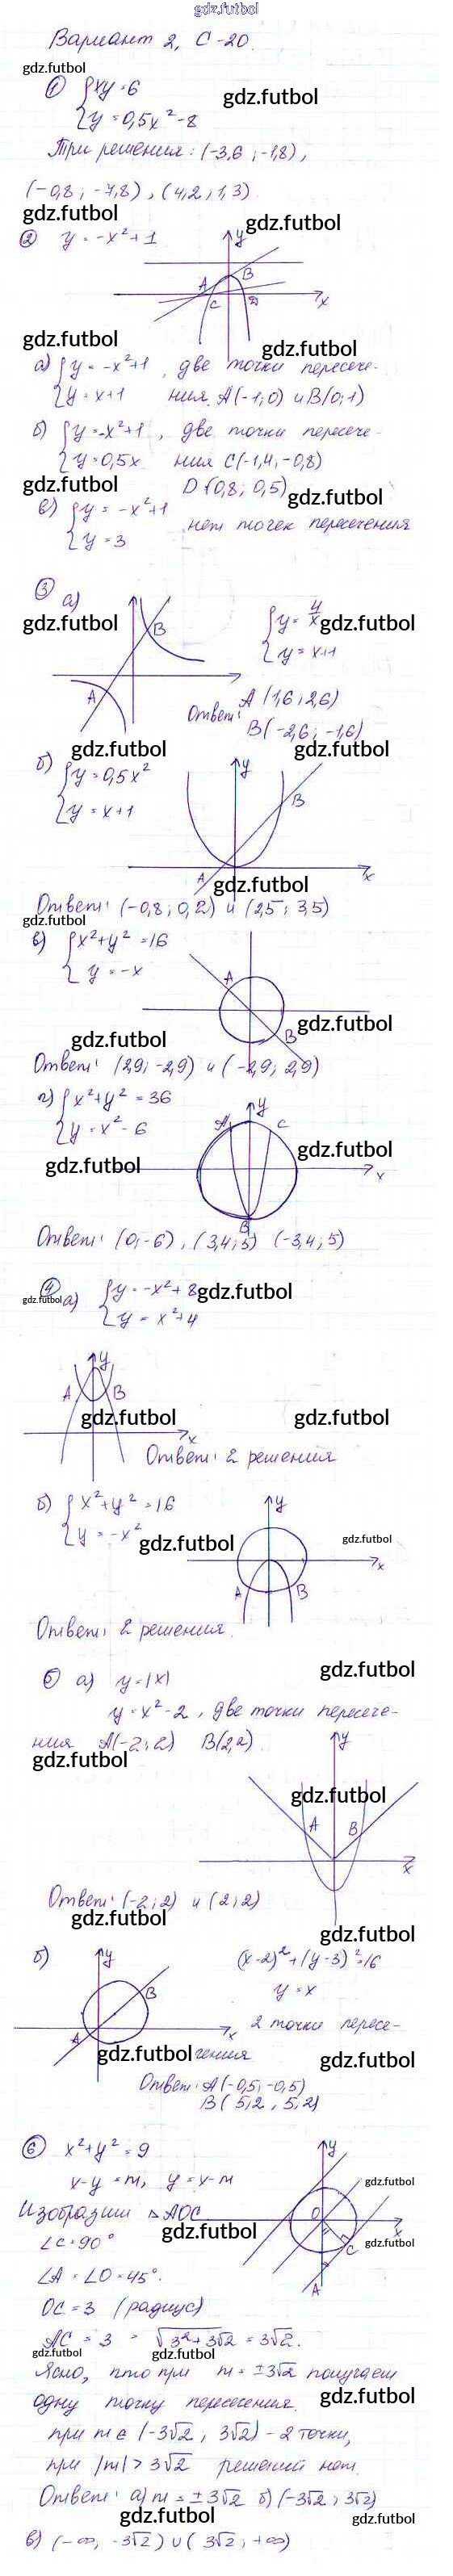 gdz.futbol
Вариант 2, С-20.
gdz.futbol
① {xy=6
gdz.futbol
{y=0,5x²-8
Три решения: (-3,6; -1,8),
(-0,8; -7,8), (4,2; 1,3).
gdz.futbol
gdz.futbol
② y = -x²+1
y
A B
C D x
gdz.futbol
gdz.futbol
а) {y = -x²+1, две точки пересече-
{y = x+1 ния A(-1;0) и B(0;1)
б) {y = -x²+1, две точки пересече-
{y = 0,5x ния C(-1,4; -0,8)
gdz.futbol
D (0,8; 0,5)
gdz.futbol
в) {y = -x²+1
нет точек пересечения
{y = 3
③ а)
gdz.futbol
B
{y = 4/x
gdz.futbol
{y = x+1
A
Ответ: A (1,6; 2,6)
B(-2,6; -1,6)
gdz.futbol
gdz.futbol
б) {y = 0,5x²
{y = x+1
y
B
A
x
gdz.futbol
Ответ: (-0,8; 0,2) и (2,5; 3,5)
gdz.futbol
в) {x²+y²=16
{y = -x
A
B
gdz.futbol
gdz.futbol
Ответ: (2,9; -2,9) и (-2,9; 2,9)
г) {x²+y² = 36
{y = x²-6
y
A C
gdz.futbol
gdz.futbol
x
B
Ответ: (0;-6), (3,4; 5) (-3,4; 5)
④ а) {y = -x²+8
gdz.futbol
gdz.futbol
{y = x²+4
y
A B
gdz.futbol
gdz.futbol
x
Ответ: 2 решения
б) {x²+y²=16
{y = -x²
y
gdz.futbol
gdz.futbol
x
A B
Ответ: 2 решения.
gdz.futbol
⑤ а) y=|x|
y = x²-2, две точки пересече-
ния A(-2;2) B(2;2).
gdz.futbol
y
gdz.futbol
A B
x
Ответ: (-2;2) и (2;2)
gdz.futbol
gdz.futbol
б) y
(x-2)²+(y-3)²=16
y = x
B
A
x
2 точки пересе-
gdz.futbol
чения
gdz.futbol
Ответ: A(-0,5; -0,5)
B(5,2; 5,2)
⑥ x²+y²=9
x-y = m, y = x-m
y
gdz.futbol
Изобразим △AOC
O
x
gdz.futbol
gdz.futbol
∠C=90°
C
∠A = ∠O = 45°.
A
OC = 3 (радиус)
AC = 3 = √3²+3√2 = 3√2.
gdz.futbol
gdz.futbol
Ясно, что при m = ±3√2 получаем
gdz.futbol
одну точку пересечения.
при m ∈ (-3√2; 3√2) - 2 точки,
при |m| > 3√2 решений нет.
Ответ: а) m = ±3√2 б) (-3√2; 3√2)
gdz.futbol
gdz.futbol
в) (-∞; -3√2) ∪ (3√2; +∞)